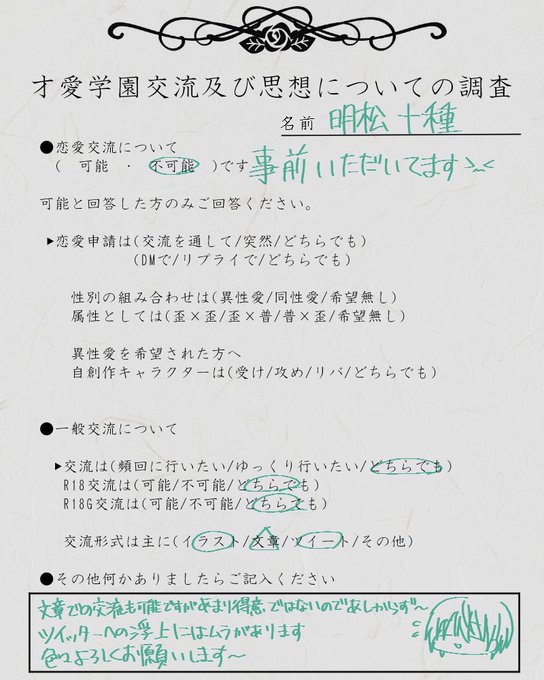 才愛学園交流及び思想についての調査
名前 明松 十種
●恋愛交流について
( 可能 ・ 不可能 )です 事前いただいてます
可能と回答した方のみご回答ください。
▶恋愛申請は(交流を通して/突然/どちらでも)
(DMで/リプライで/どちらでも)
性別の組み合わせは(異性愛/同性愛/希望無し)
属性としては(歪×歪/歪×普/普×歪/希望無し)
異性愛を希望された方へ
自創作キャラクターは(受け/攻め/リバ/どちらでも)
●一般交流について
▶交流は(頻回に行いたい/ゆっくり行いたい/どちらでも)
R18交流は(可能/不可能/どちらでも)
R18G交流は(可能/不可能/どちらでも)
交流形式は主に(イラスト/文章/ツイート/その他)
●その他何かありましたらご記入ください
文章での交流も可能ですがあまり得意ではないのであしからず〜
ツイッターへの浮上にはムラがあります
色々よろしくお願いします〜